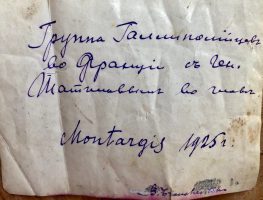 Группа Галлиполійцевъ
во Франціи съ Ген.
во главѣ
Montargis 1925 г.